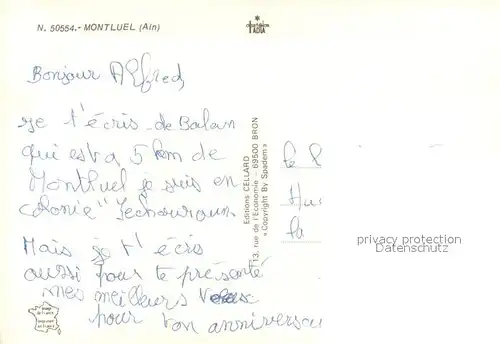 N. 50554.- MONTLUEL (Ain)
Bonjour Alfred,
je t'écris de Balan
qui est a 5 km de
Montluel je suis en
colonie
Mais je t'écris
aussi pour te présenté
mes meilleurs Veux
pour ton anniversai
Editions CELLARD
13, rue de l'Economie - 69500 BRON
« Copyright By Spadem »
le
la
privacy protection
Datenschutz